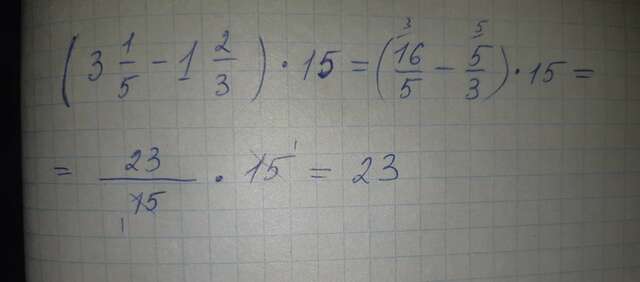 (3 1/5 - 1 2/3) · 15 = (16/5 - 5/3) · 15 =
= 23/15 · 15 = 23